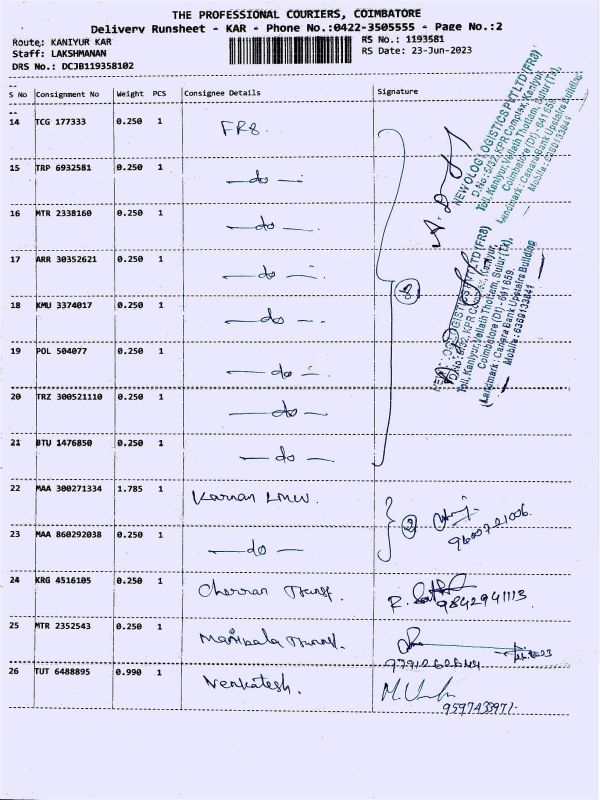 THE PROFESSIONAL COURIERS, COIMBATORE
Delivery Runsheet - KAR - Phone No.:0422-3505555 - Page No.:2
Route: KANIYUR KAR
RS No.: 1193581
Staff: LAKSHMANAN
RS Date: 23-Jun-2023
DRS No.: DCJB119358102
S No Consignment No Weight PCS Consignee Details Signature
14 TCG 177333 0.250 1 FR8.
15 TRP 6932581 0.250 1 — do —
16 MTR 2338160 0.250 1 — do —
17 ARR 30352621 0.250 1 — do —
18 KMU 3374017 0.250 1 — do —
19 POL 504077 0.250 1 — do —
20 TRZ 300521110 0.250 1 — do —
21 BTU 1476850 0.250 1 — do —
22 MAA 300271334 1.785 1 Karnan LMW.
23 MAA 860292038 0.250 1 — do —
24 KRG 4516105 0.250 1 9842941113
25 MTR 2352543 0.250 1
26 TUT 6488895 0.990 1 Venkatesh.
8
2
NEWOLOGI LOGISTICS PVT LTD (FR8)
D.No: 6/32, KPR Complex, Kaniyur,
Toll, Kaniyur, Vellath Thottam, Sulur (TK),
Coimbatore (DT) - 641 659.
(Landmark : Canara Bank Upstairs Building
Mobile : 6369133841
LOGISTICS PVT LTD (FR8)
Toll, Kaniyur, Vellath Thottam, Sulur (TK),
Coimbatore (DT) - 641 659.
(Landmark : Canara Bank Upstairs Building
Mobile : 6369133841